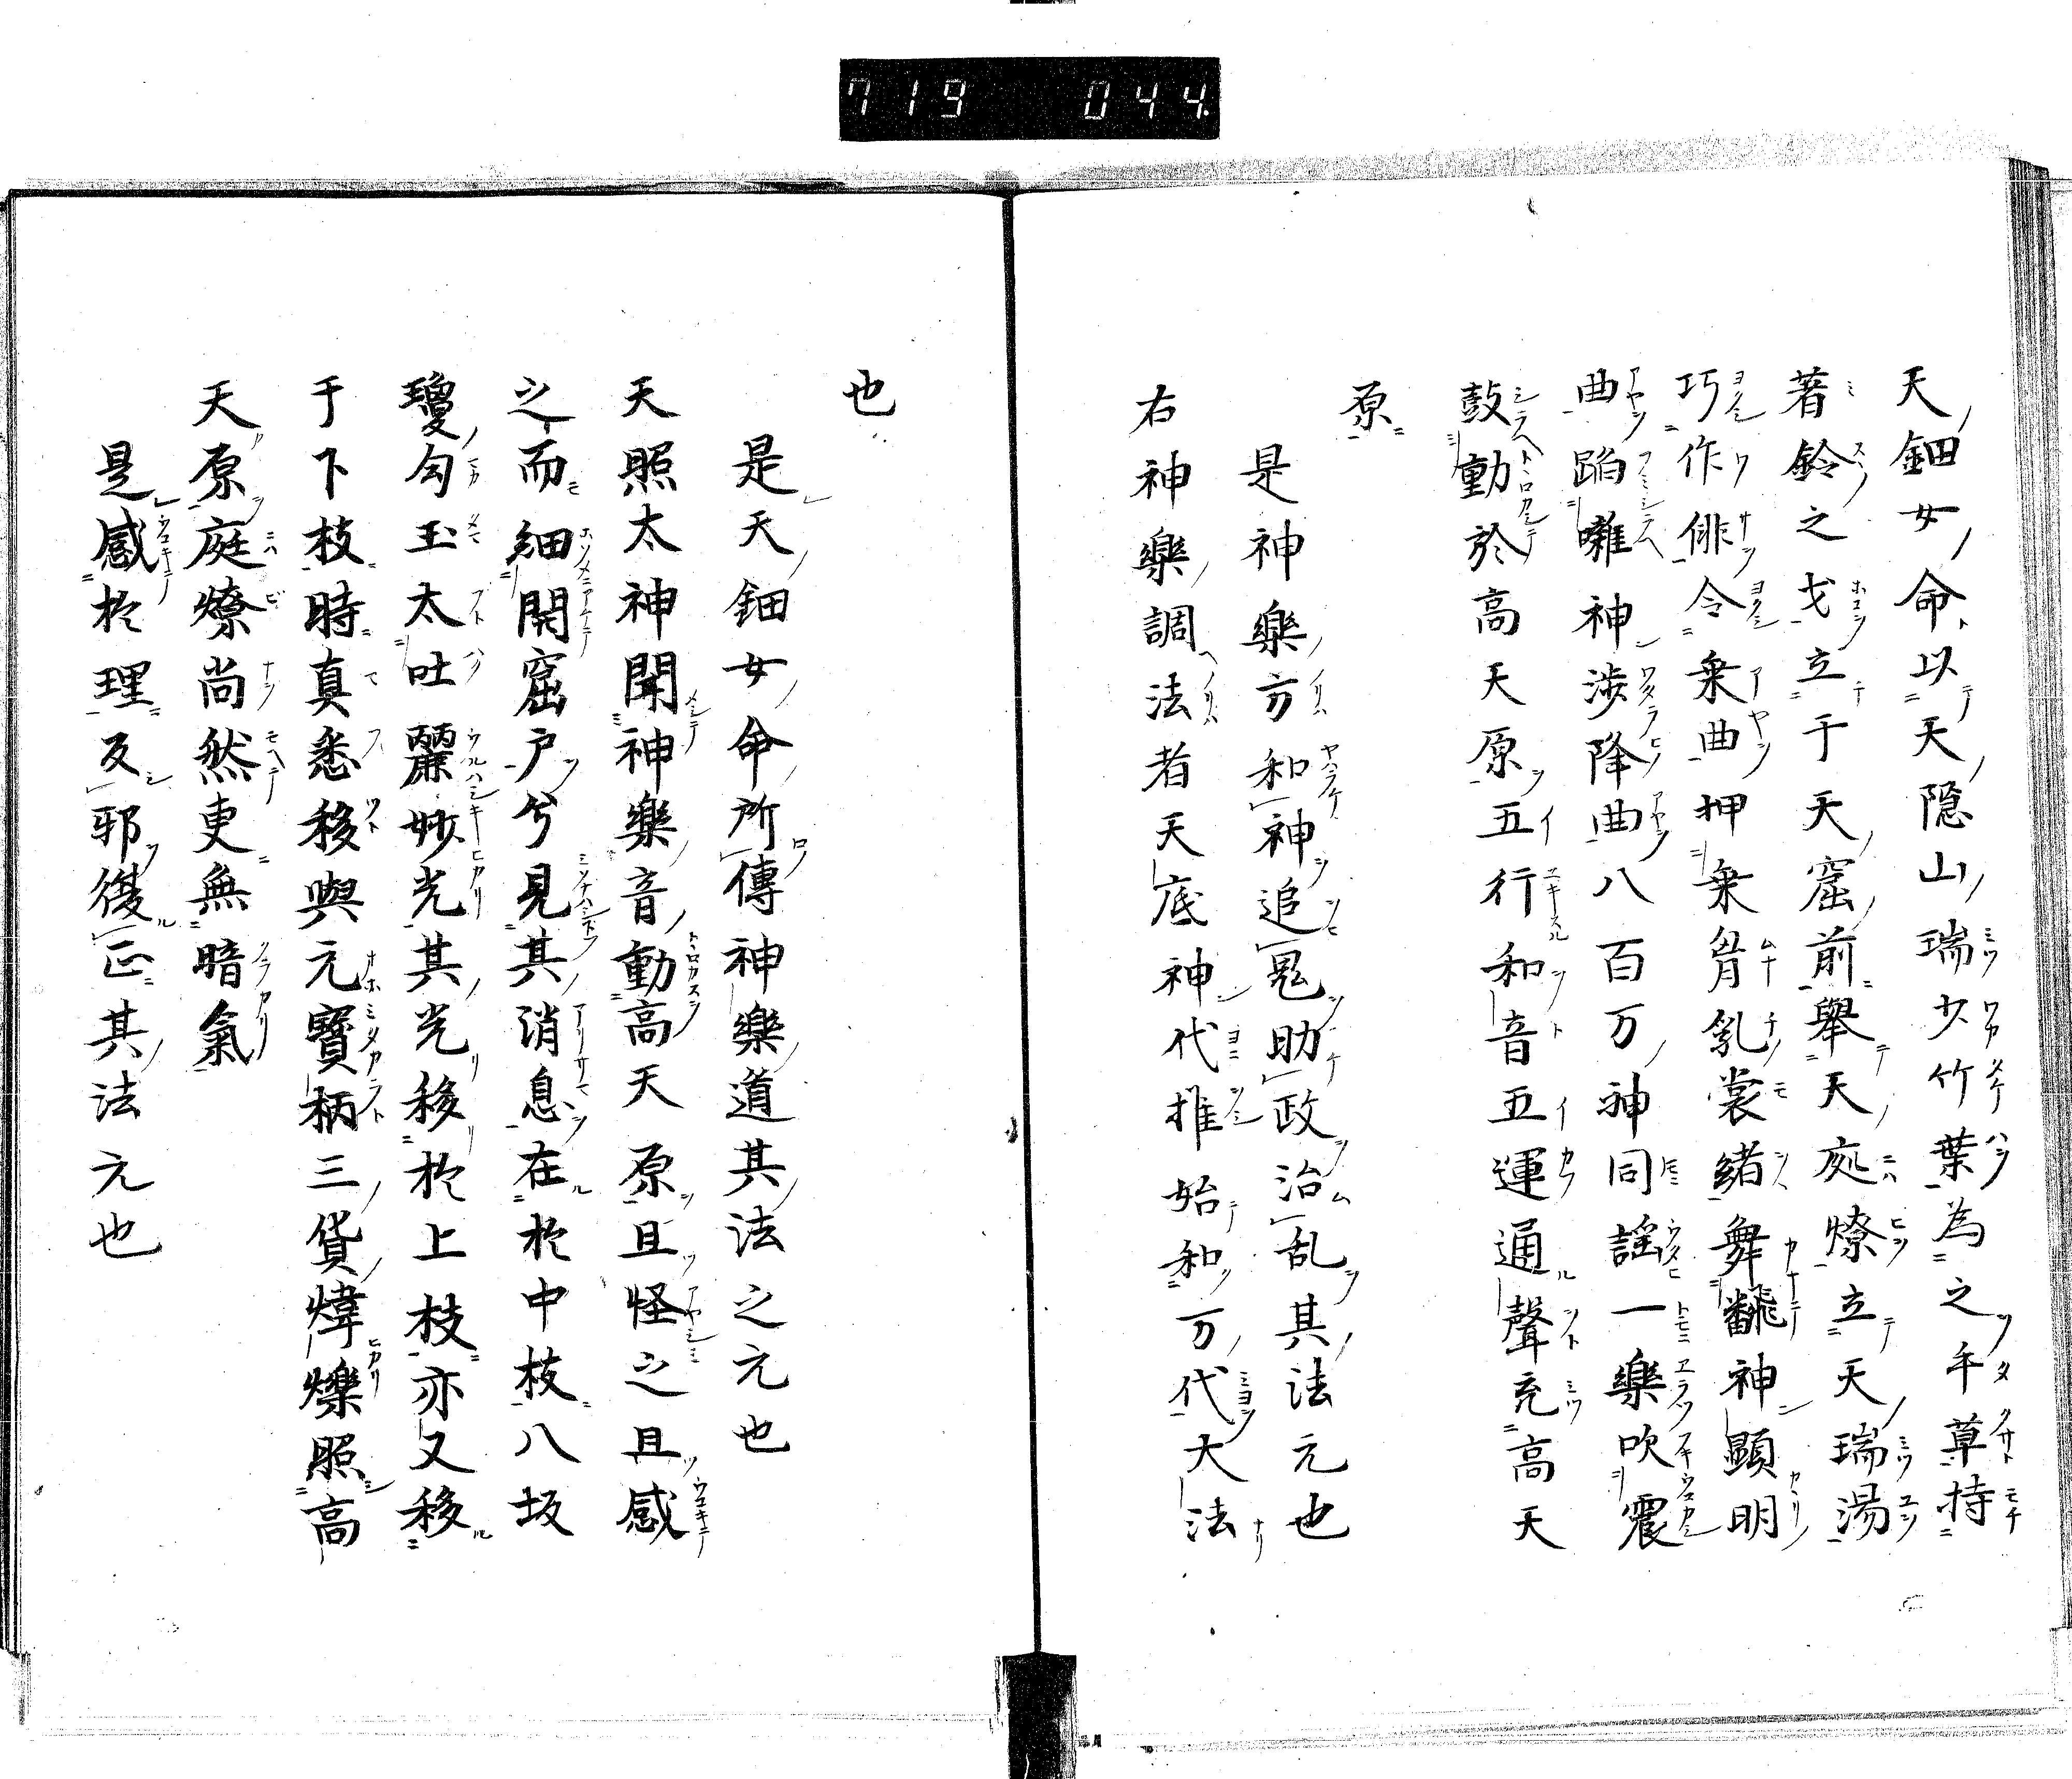 719 044.
天鈿女命以天隠山瑞少竹葉為之手草持
著鈴之戈立于天窟前舉天庭燎立天瑞湯
巧作俳令乗曲押乗胷乳裳緒舞飜神顕明
曲蹈囃神渉降曲八百万神同謡一樂吹震
鼓動於高天原五行和音五運通聲充高天
原
是神樂方和神追鬼助政治乱其法元也
右神樂調法者天底神代推始和万代大法
也
是天鈿女命所傳神樂道其法之元也
天照太神聞神樂音動高天原且怪之且感
之而細開窟戸兮見其消息在於中枝八坂
瓊勾玉太吐麗妙光其光移於上枝亦又移
于下枝時真悉移與元寳柄三貨煒爍照高
天原庭燎尚然更無暗氣
是感於理反邪復正其法元也